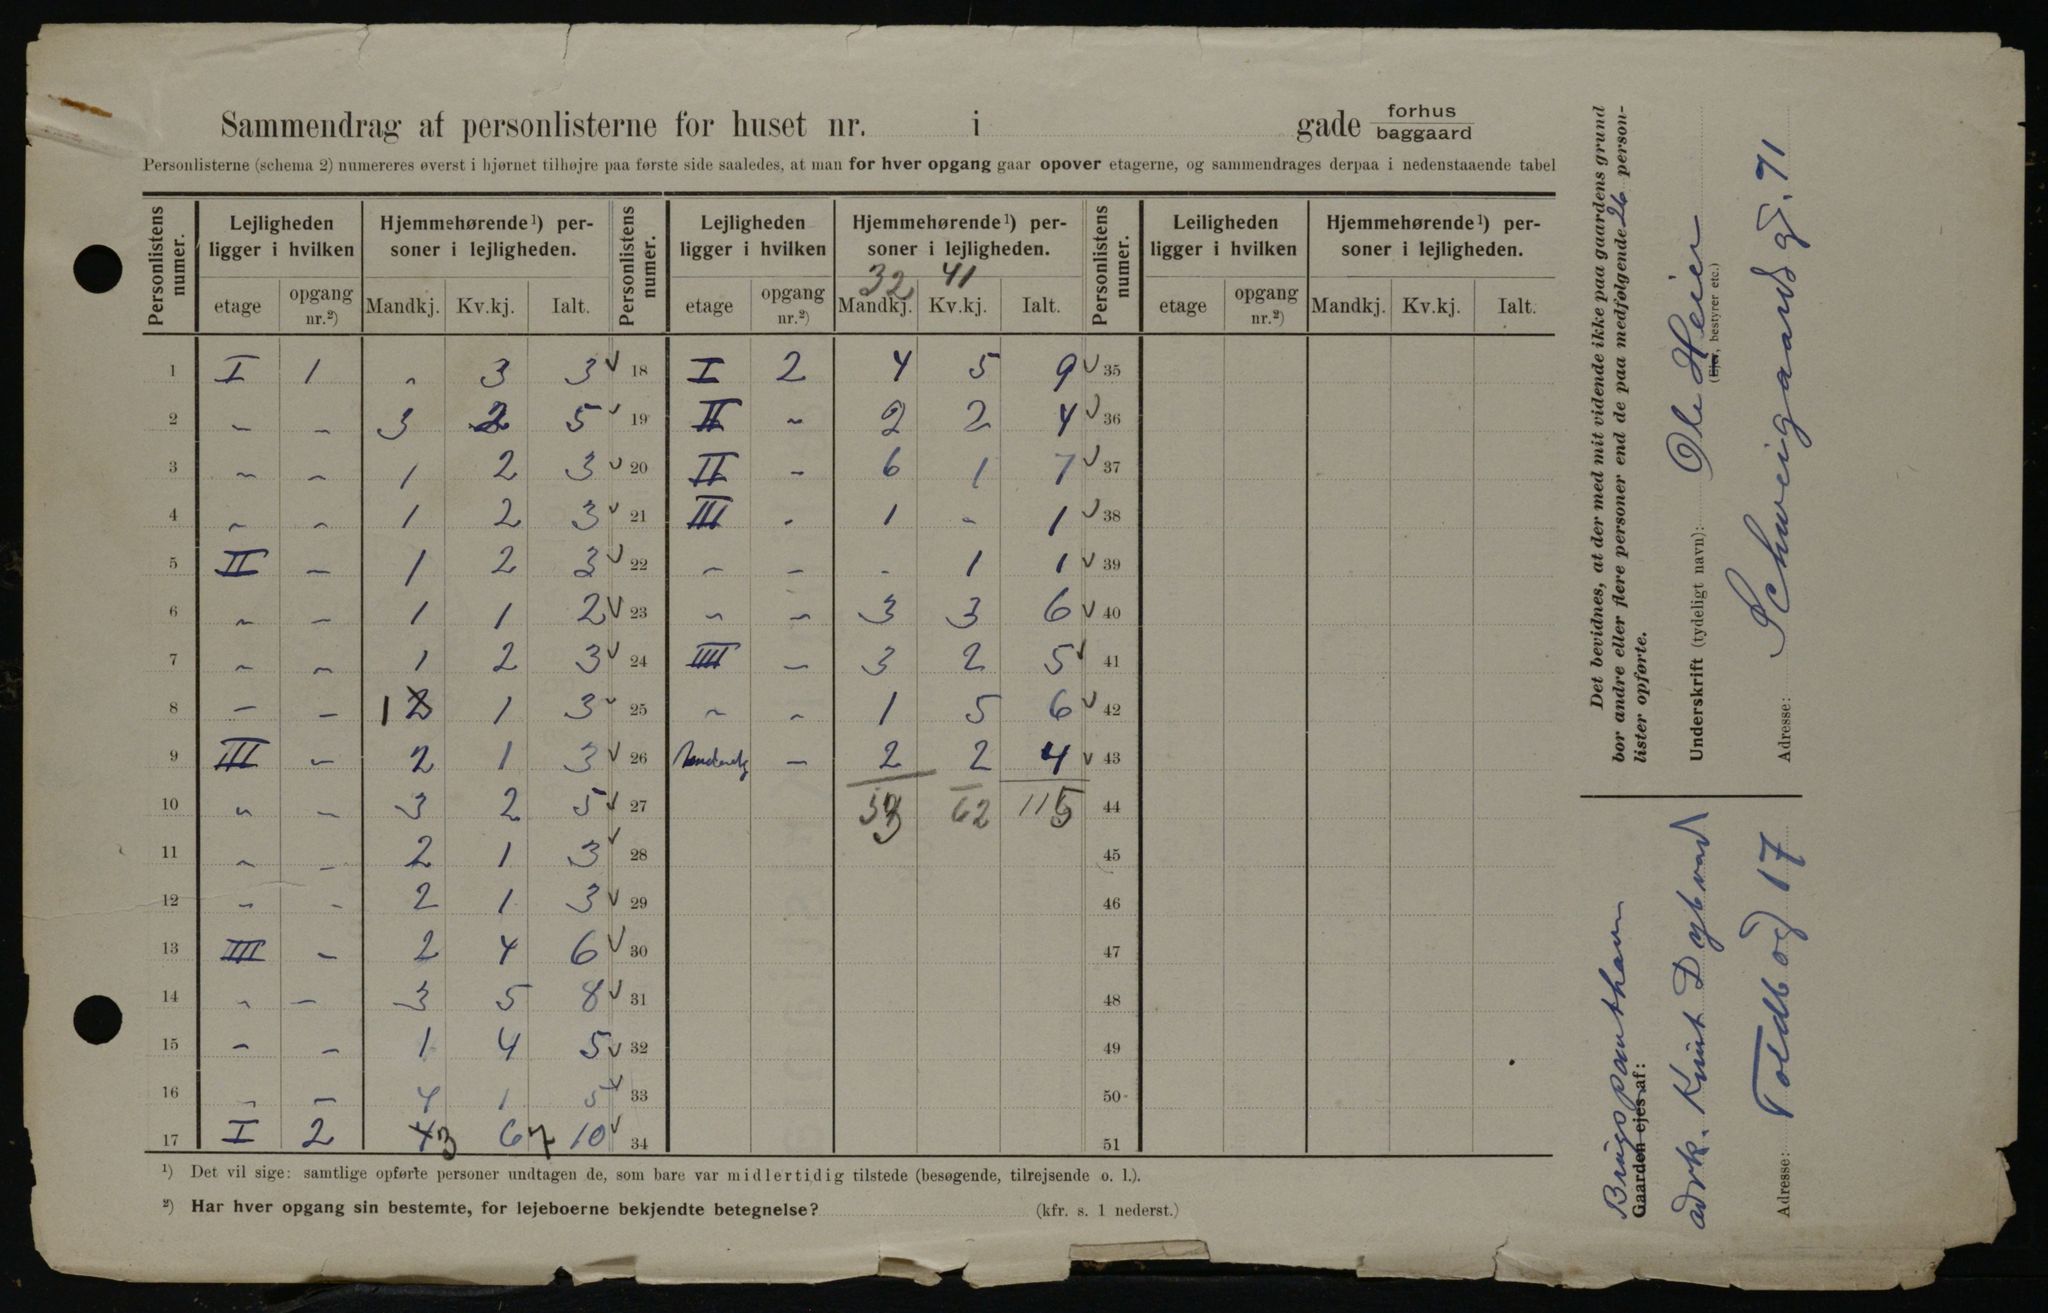 Sammendrag af personlisterne for huset nr. i gade forhus baggaard
Personlisterne (schema 2) numereres øverst i hjørnet tilhøjre paa første side saaledes, at man for hver opgang gaar opover etagerne, og sammendrages derpaa i nedenstaaende tabel
Personlistens numer. Lejligheden ligger i hvilken Hjemmehørende¹) personer i lejligheden. Personlistens numer. Lejligheden ligger i hvilken Hjemmehørende¹) personer i lejligheden. Personlistens numer. Leiligheden ligger i hvilken Hjemmehørende¹) personer i lejligheden.
32 41
etage opgang nr.²) Mandkj. Kv.kj. Ialt. etage opgang nr.²) Mandkj. Kv.kj. Ialt. etage opgang nr.²) Mandkj. Kv.kj. Ialt.
1 I 1 „ 3 3 v 18 I 2 4 5 9 v 35
2 ~ ~ 3 2 5 v 19 II ~ 2 2 4 v 36
3 ~ ~ 1 2 3 v 20 II ~ 6 1 7 v 37
4 ~ ~ 1 2 3 v 21 III ~ 1 ~ 1 v 38
5 II ~ 1 2 3 v 22 ~ ~ ~ 1 1 v 39
6 ~ ~ 1 1 2 v 23 ~ ~ 3 3 6 v 40
7 ~ ~ 1 2 3 v 24 IIII ~ 3 2 5 v 41
8 ~ ~ 1 2 1 3 v 25 ~ ~ 1 5 6 v 42
9 III ~ 2 1 3 v 26 ~ 2 2 4 v 43
10 ~ ~ 3 2 5 v 27 53 62 115 44
11 ~ ~ 2 1 3 v 28 45
12 ~ ~ 2 1 3 v 29 46
13 IIII ~ 2 4 6 v 30 47
14 ~ ~ 3 5 8 v 31 48
15 ~ ~ 1 4 5 v 32 49
16 ~ ~ 4 1 5 v 33 50
17 I 2 4 3 6 7 10 v 34 51
¹) Det vil sige: samtlige opførte personer undtagen de, som bare var midlertidig tilstede (besøgende, tilrejsende o. l.).
²) Har hver opgang sin bestemte, for lejeboerne bekjendte betegnelse? (kfr. s. 1 nederst.)
Det bevidnes, at der med mit vidende ikke paa gaardens grund
bor andre eller flere personer end de paa medfølgende 26 person-
lister opførte.
Underskrift (tydeligt navn): Ole Heier
(Ejer, bestyrer etc.)
Adresse: Schweigaards g. 71
Gaarden ejes af:
advk. Knut Dybwad
Adresse: Toldbodg 17